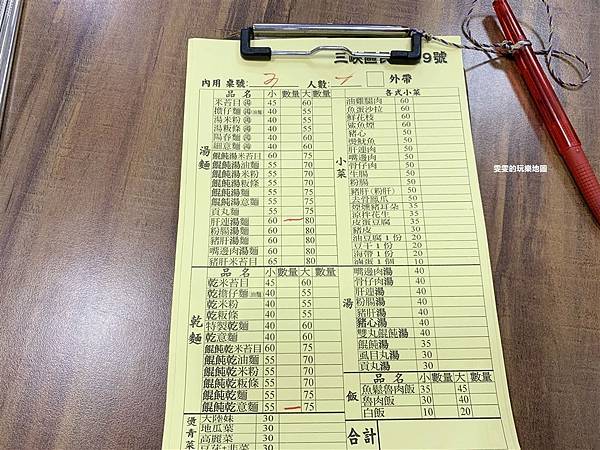 三峽區長 9號
內用 桌號: 人數: 外帶
品名 小 數量 大 數量
湯麵
米苔目 湯 45 60
擔仔麵 湯(油麵) 40 55
湯米粉 40 55
湯粄條 40 55
陽春麵 湯 40 55
細意麵 湯 40 55
餛飩湯米苔目 60 75
餛飩湯油麵 55 70
餛飩湯米粉 55 70
餛飩湯粄條 55 70
餛飩湯麵 55 70
餛飩湯意麵 55 75
貢丸麵 55 75
肝連湯麵 60 80
粉腸湯麵 60 80
豬肝湯麵 60 80
嘴邊肉湯麵 60 80
豬肝米苔目 65 80
品名 小 數量 大 數量
乾麵
乾米苔目 45 60
乾擔仔麵(油麵) 40 55
乾米粉 40 55
乾粄條 40 55
特製乾麵 40 55
乾意麵 40 55
餛飩乾米苔目 60 75
餛飩乾油麵 55 70
餛飩乾米粉 55 70
餛飩乾粄條 55 70
餛飩乾麵 55 70
餛飩乾意麵 55 75
燙青菜
大陸妹 30
地瓜葉 30
高麗菜 30
各式小菜
小菜
油雞腿肉 60
魚蛋沙拉 60
鮮花枝 60
鯊魚煙 60
豬心 50
燙魷魚 50
肝連肉 50
嘴邊肉 50
骨仔肉 50
生腸 50
粉腸 50
豬肝(粉肝) 50
去骨鳳爪 50
煙燻豬耳朵 35
涼拌花生 35
皮蛋豆腐 35
豬皮 30
油豆腐1份 20
豆干1份 20
海帶1份 20
滷蛋1個 10
湯
嘴邊肉湯 40
骨仔肉湯 40
肝連湯 40
粉腸湯 40
豬肝湯 40
豬心湯 40
雙丸餛飩湯 40
餛飩湯 35
虱目丸湯 30
貢丸湯 30
品名 小 數量 大 數量
飯
魚鬆魯肉飯 35 45
魯肉飯 30 40
白飯 10 20
合計
雯雯的玩樂地圖